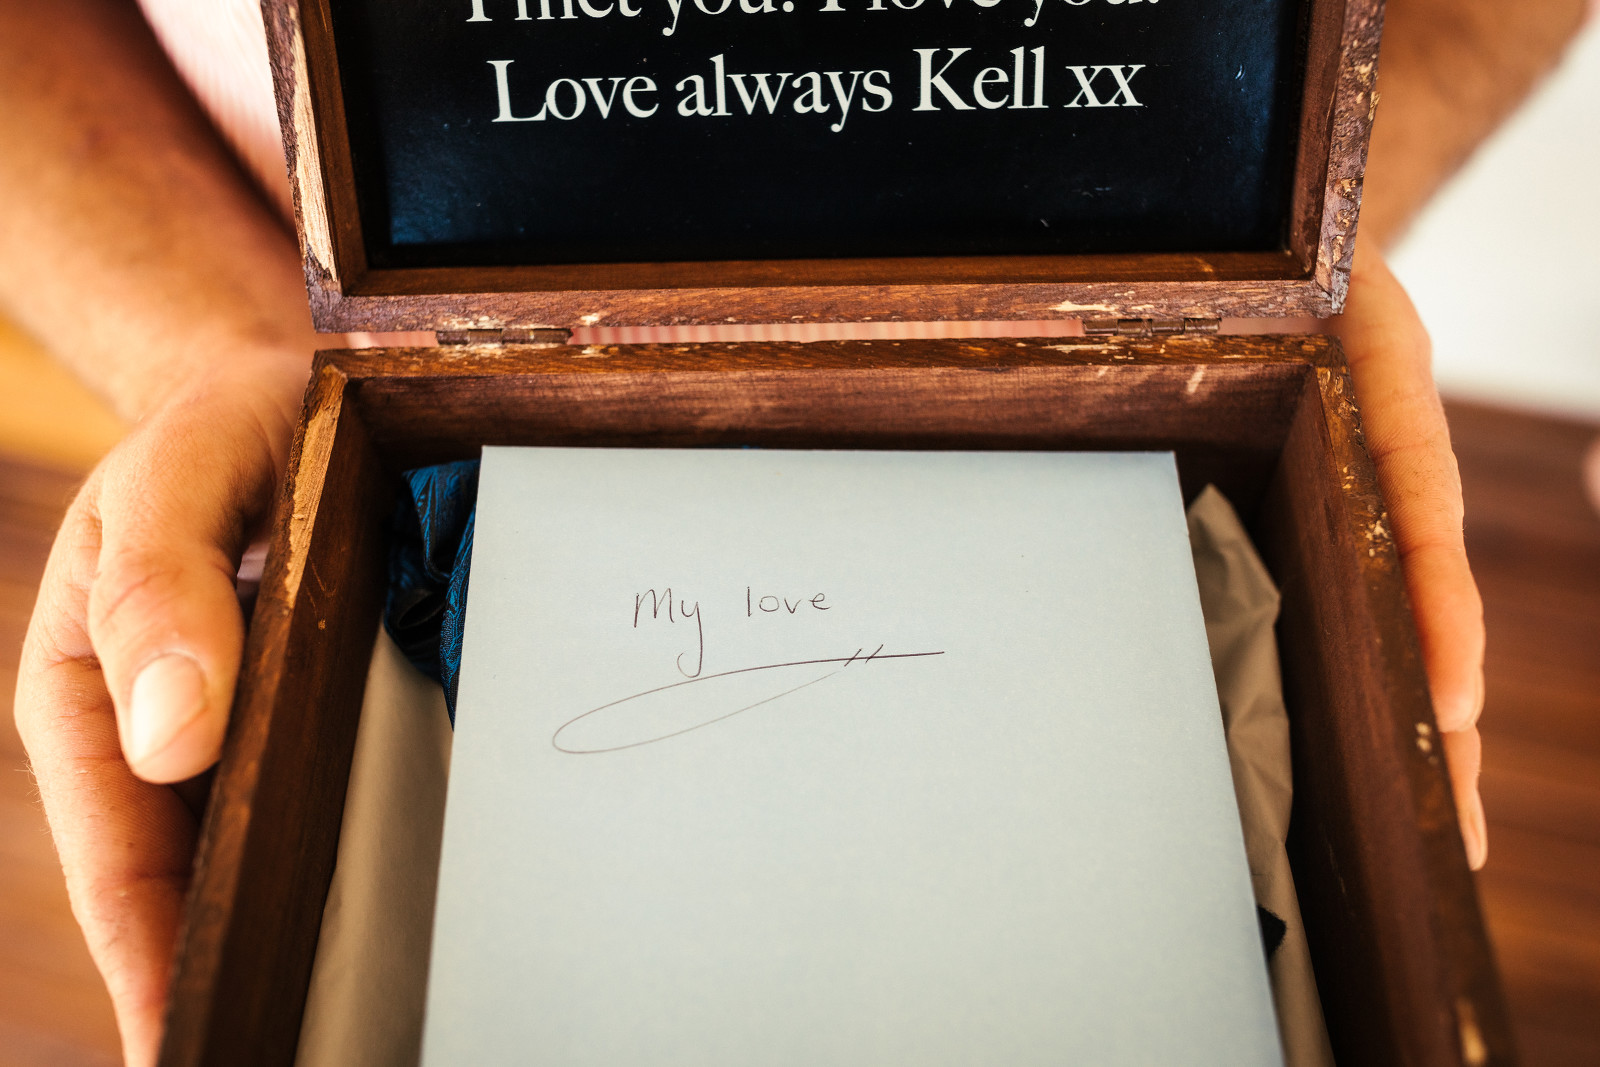 I met you. I love you.
Love always Kell xx
My love